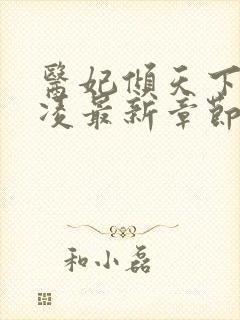 醫妃傾天下
凌最新章節
和小磊